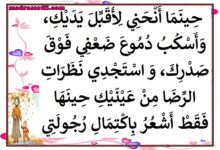 حِينَمَا أَنْحَنِي لِأُقَبِّلَ يَدَيْكِ،
وَأَسْكُبُ دُمُوعَ ضَعْفِي فَوْقَ
صَدْرِكِ، وَ اسْتَجْدِي نَظَرَاتِ
الرِّضَا مِنْ عَيْنَيْكِ حِينَهَا
فَقَطْ أَشْعُرُ بِاكْتِمَالِ رُجُولَتِي